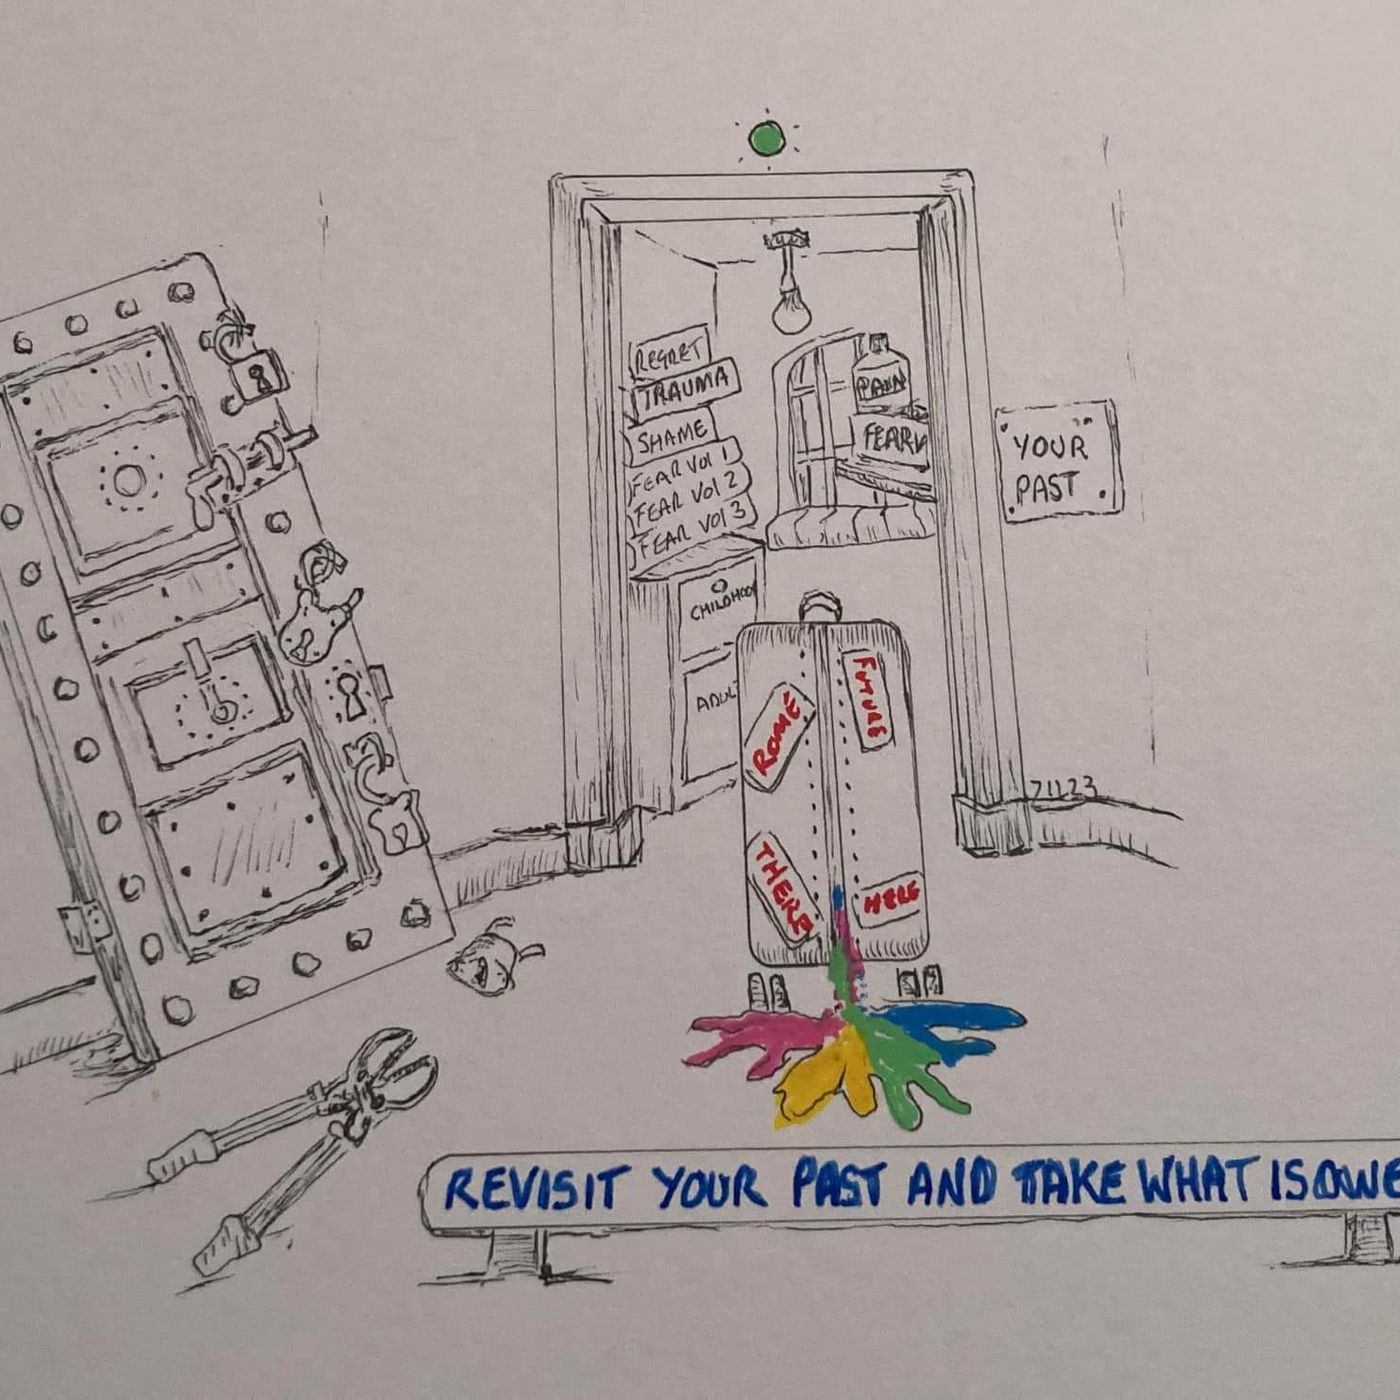 REGRET
TRAUMA
SHAME
FEAR Vol 1
FEAR Vol 2
FEAR Vol 3
CHILDHOOD
ADUL
PAIN
FEAR V
YOUR
PAST
ROME
FUTURE
THERE
HERE
71123
REVISIT YOUR PAST AND TAKE WHAT IS OWE